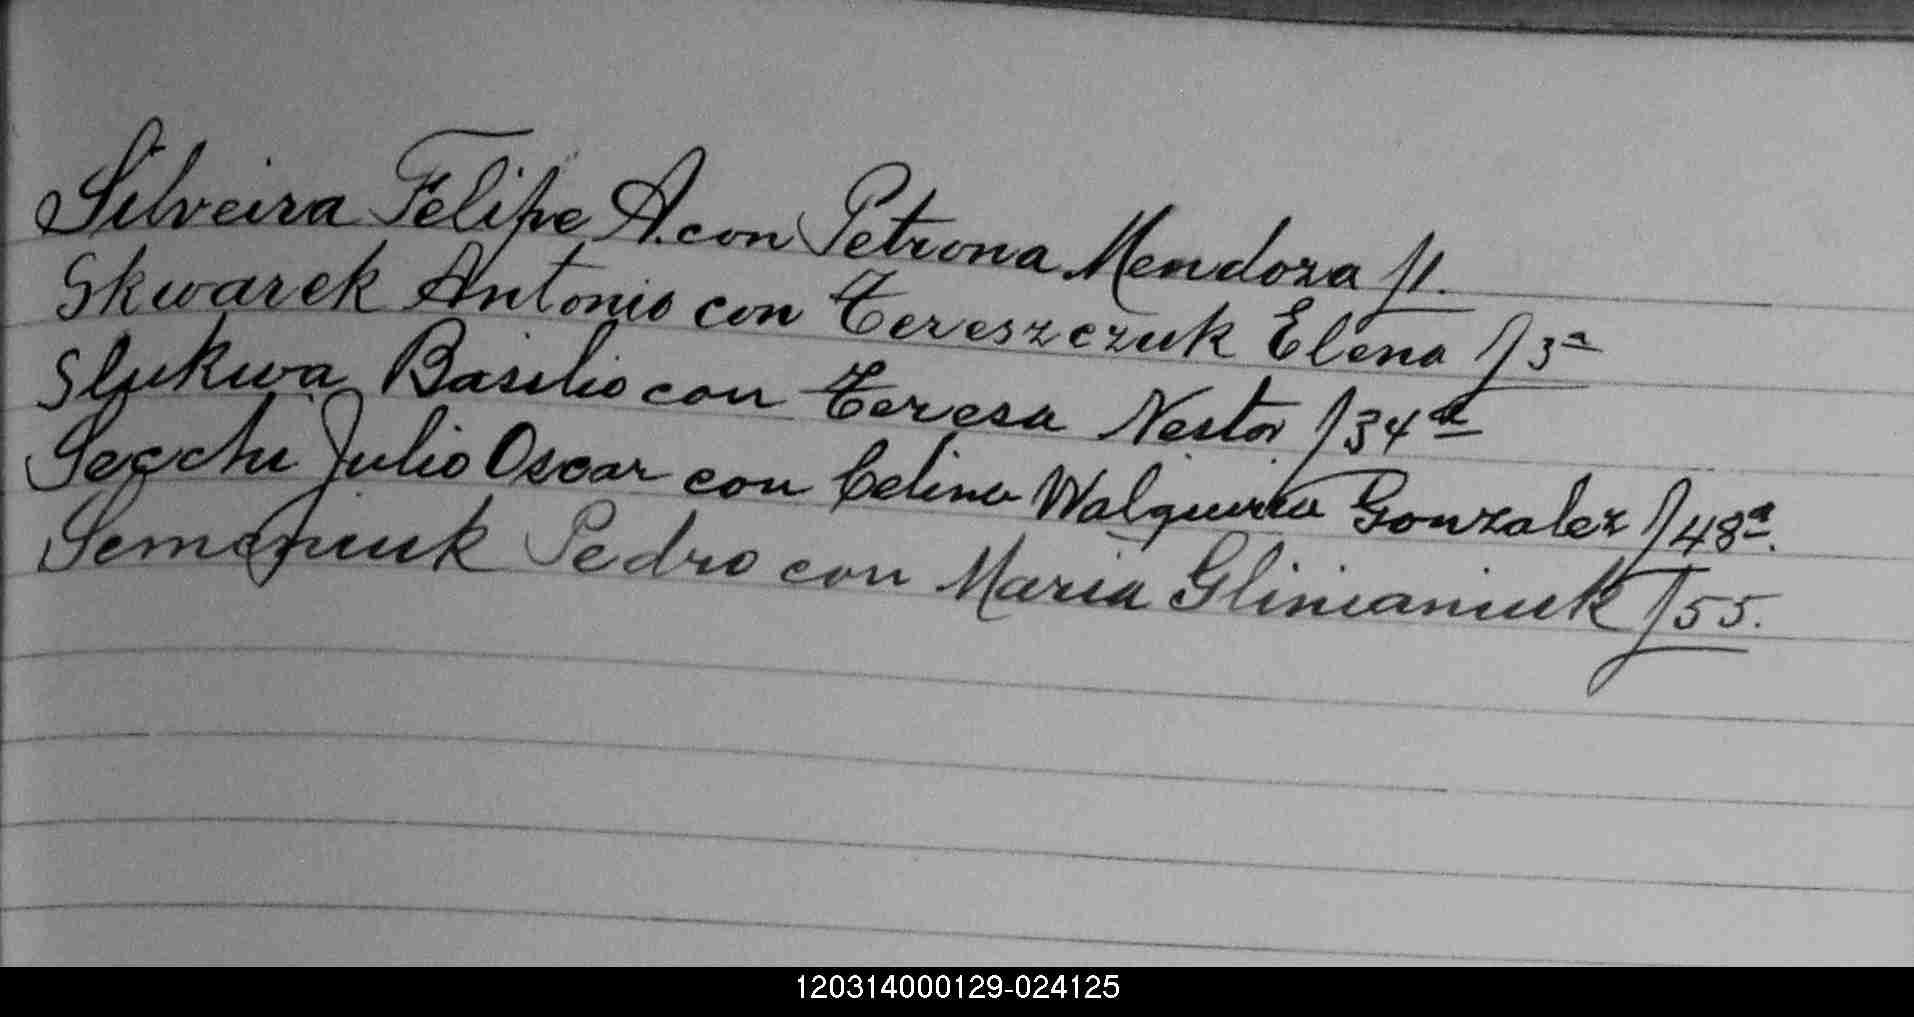 Silveira Felipe A. con Petrona Mendoza f1.
Skwarek Antonio con Tereszczuk Elena f3ª
Slukwa Basilio con Teresa Nestor f34ª
Secchi Julio Oscar con Celina Walquiria Gonzalez f48ª.
Semeniuk Pedro con Maria Glinianiuk f55.
120314000129-024125